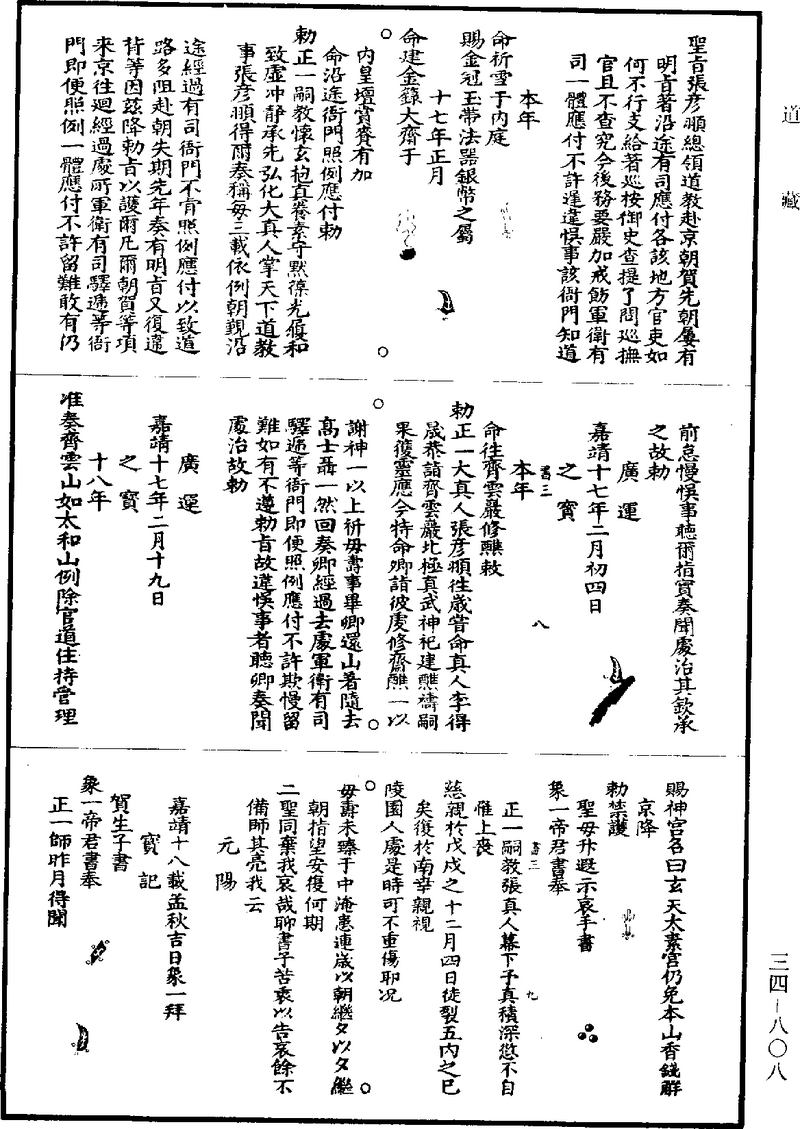 道藏
聖旨張彥頨總領道教赴京朝賀先朝屢有
明旨著沿途有司應付各該地方官吏如
何不行支給著巡按御史查提了問巡撫
官且不查究今後務要嚴加戒飭軍衛有
司一體應付不許遲違悞事該衙門知道
本年
命祈雪于內庭
賜金冠玉帶法器銀幣之屬
十七年正月
命建金籙大齋于
內皇壇賞賚有加
命沿途衙門照例應付勅
勅正一嗣教懷玄抱真養素守默葆光履和
致虛冲靜承先弘化大真人掌天下道教
事張彥頨得爾奏稱每三載依例朝覲沿
途經過有司衙門不肯照例應付以致道
路多阻赴朝失期先年奏有明旨又復違
背等因茲降勅旨以護爾凡爾朝賀等項
來京往廻經過處所軍衛有司驛遞等衙
門即便照例一體應付不許留難敢有仍
前怠慢悞事聽爾指實奏聞處治其欽承
之故勅
廣運
嘉靖十七年二月初四日
之寶
本年
命往齊雲巖修醮敕
勅正一大真人張彥頨往歲嘗命真人李得
晟恭詣齊雲巖北極真武神祀建醮禱嗣
果獲靈應今特命卿詣彼處修齋醮一以
謝神一以上祈母壽事畢卿還山著隨去
高士聶一然回奏卿經過去處軍衛有司
驛遞等衙門即便照例應付不許欺慢留
難如有不遵勅旨故違悞事者聽卿奏聞
處治故勅
廣運
嘉靖十七年二月十九日
之寶
十八年
准奏齊雲山如太和山例除官道住持管理
賜神宮名曰玄天太素宮仍免本山香錢解
京降
勅禁護
聖母升遐示哀手書
象一帝君書奉
正一嗣教張真人幕下予真積深愆不自
惟上喪
慈親於戊戌之十二月四日徒裂五內之已
矣復於南幸親視
陵園人處是時可不重傷耶况
母壽未臻于中淹恙連歲以朝繼夕以夕繼
朝指望安復何期
二聖同棄我哀哉聊書予苦衷以告哀餘不
備師其亮我云
元陽
嘉靖十八載孟秋吉日象一拜
寶記
賀生子書
象一帝君書奉
正一師昨月得聞
三四－八〇八